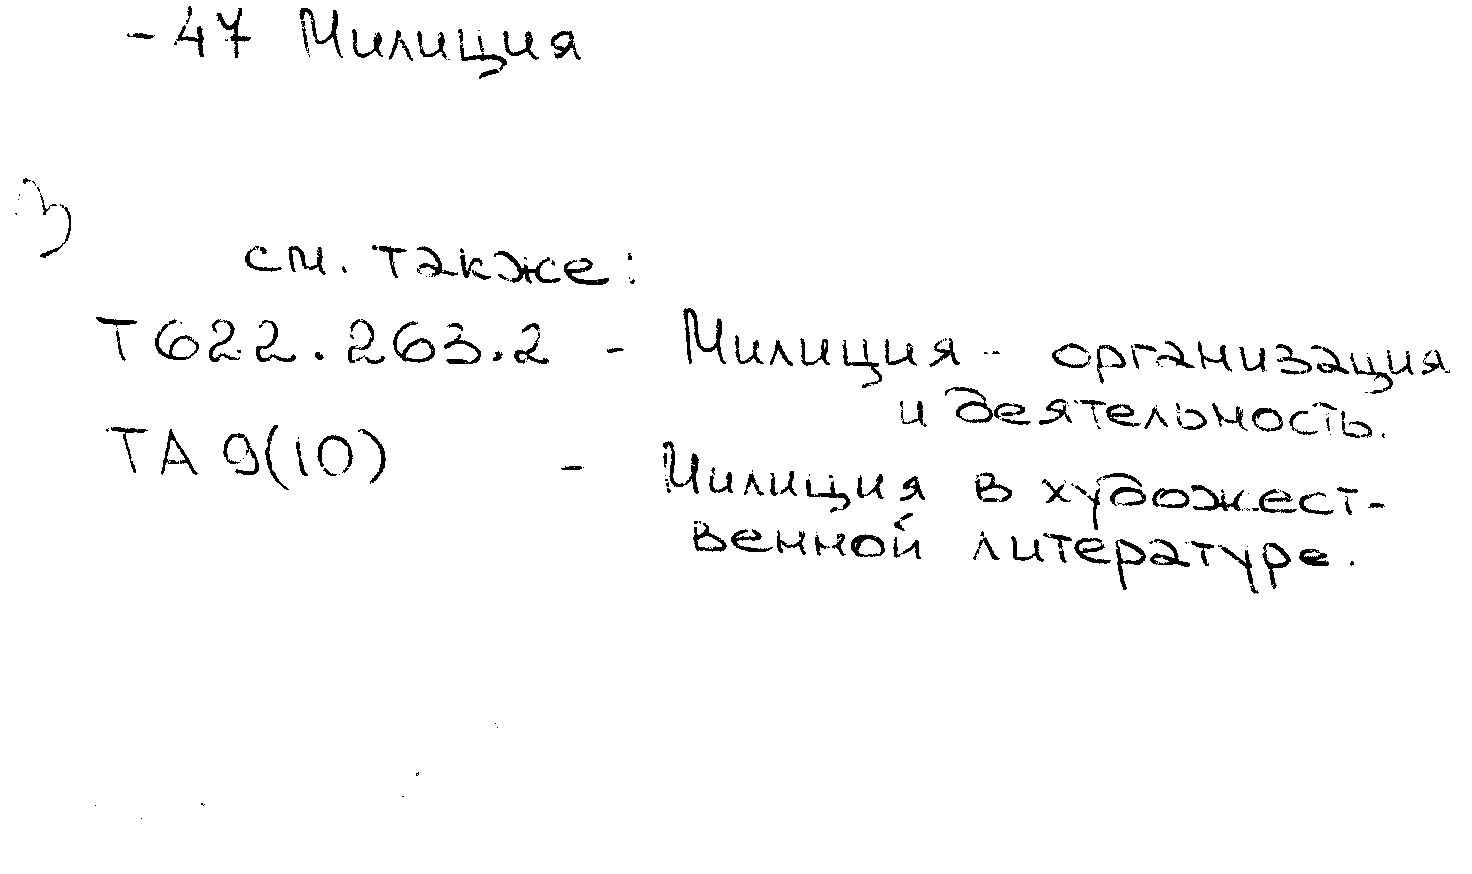 -47 Милиция
см. также:
Т622.263.2 - Милиция - организация
и деятельность.
ТА 9(10) - Милиция в художест-
венной литературе.